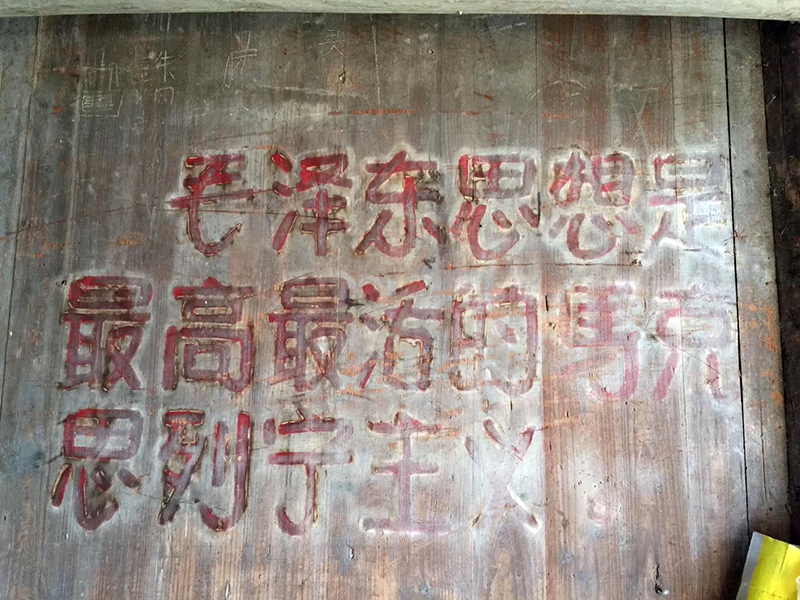 毛泽东思想是
最高最活的馬克
思列宁主义。